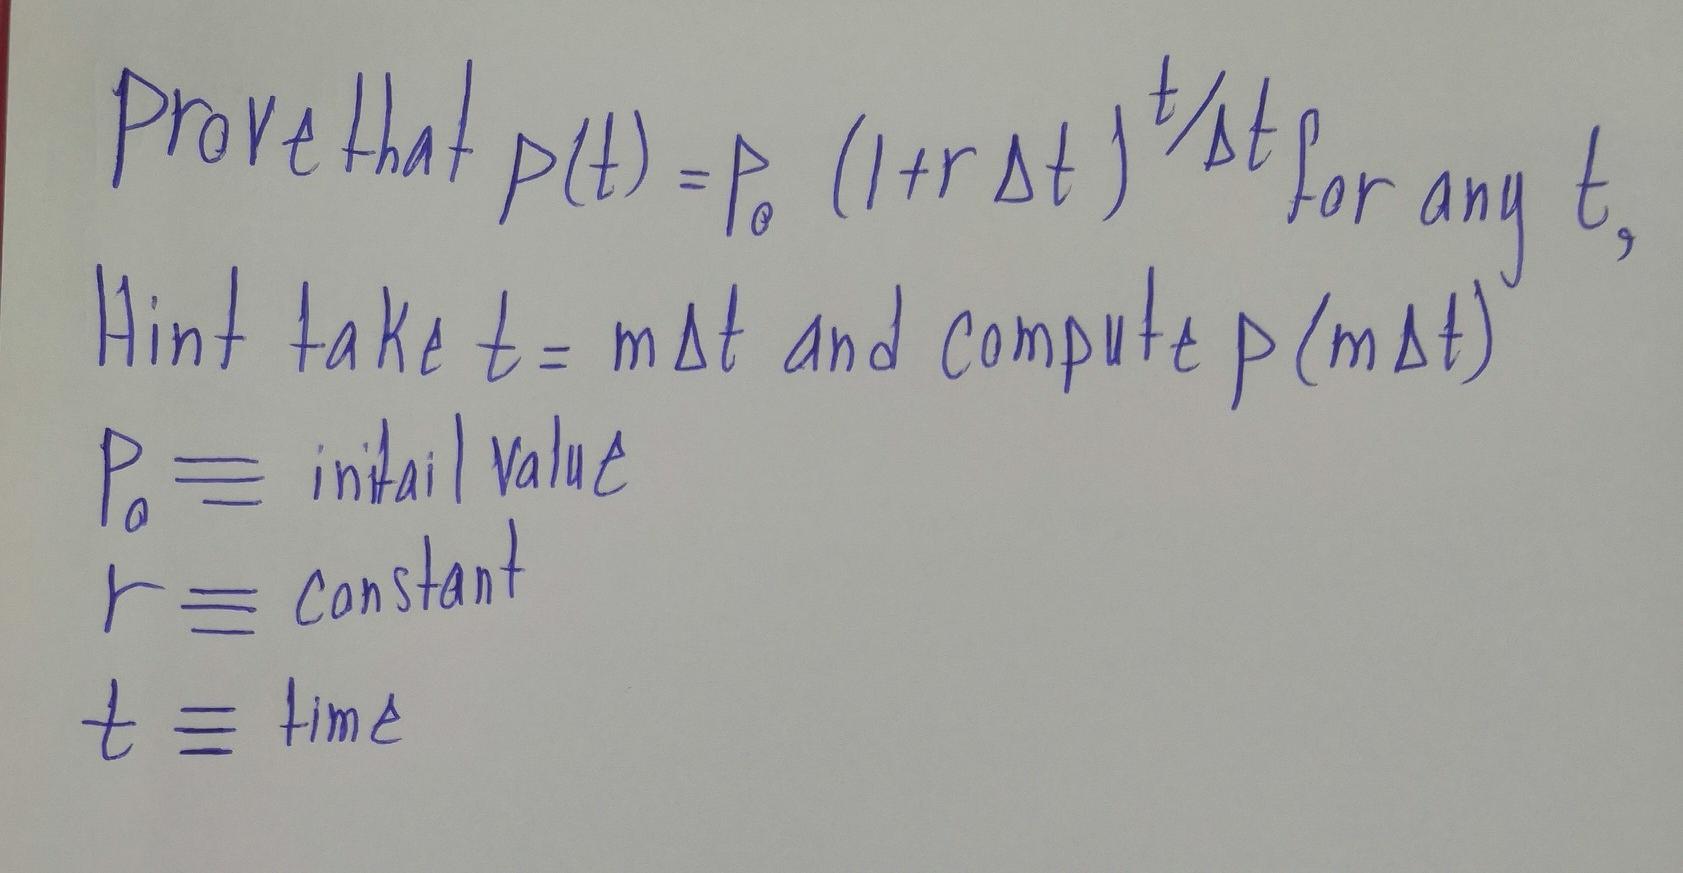 Prove that p(t) = P₀ (1+r Δt)^t/Δt for any t,
Hint take t = mΔt and compute p(mΔt)
P₀ ≡ initail value
r ≡ constant
t ≡ time